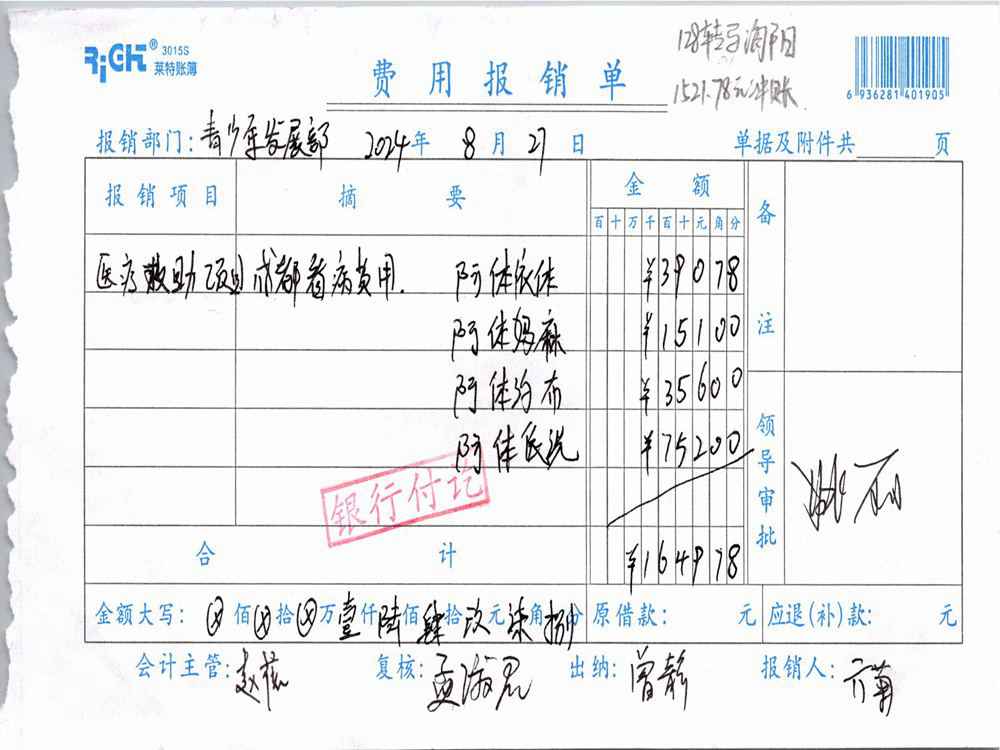 RiGHT® 3015S
莱特账簿
128转子洵阳
1521.78元冲账
费用报销单
6 936281 401905
报销部门:青少年发展部 2024年 8月 27日 单据及附件共 页
报销项目 摘要 金额 备注
百十万千百十元角分
医疗救助项目 成都看病费用. 阿体依体 ¥39078
阿体妈麻 ¥15100
阿体治布 ¥35600
阿体民说 ¥75200
领导审批
银行付讫
合计 ¥164978
金额大写: ⊗佰⊗拾⊗万壹仟陆佰肆拾玖元柒角捌分 原借款: 元 应退(补)款: 元
会计主管: 复核:孟淑君 出纳:曾静 报销人: